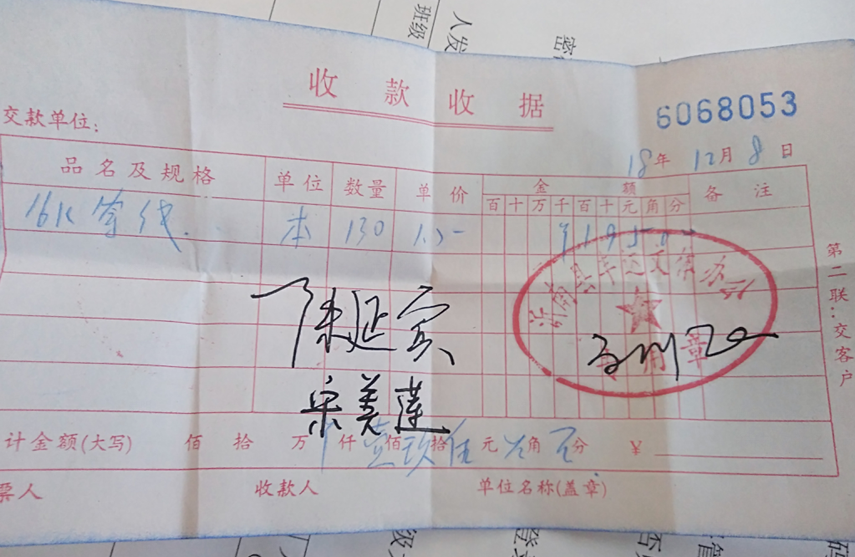 人发
班级
密
收款收据
6068053
交款单位:
18年 12月 8日
品名及规格 单位 数量 单价 金额 备注
百 十 万 千 百 十 元 角 分
16K 本 130 1.5-
¥ 1 9 5 0 0
陈延宾
宋美莲
专用章
第二联:交客户
计金额(大写) 佰 拾 万 仟 壹佰 玖拾 伍元 角 分 ¥
票人 收款人 单位名称(盖章)